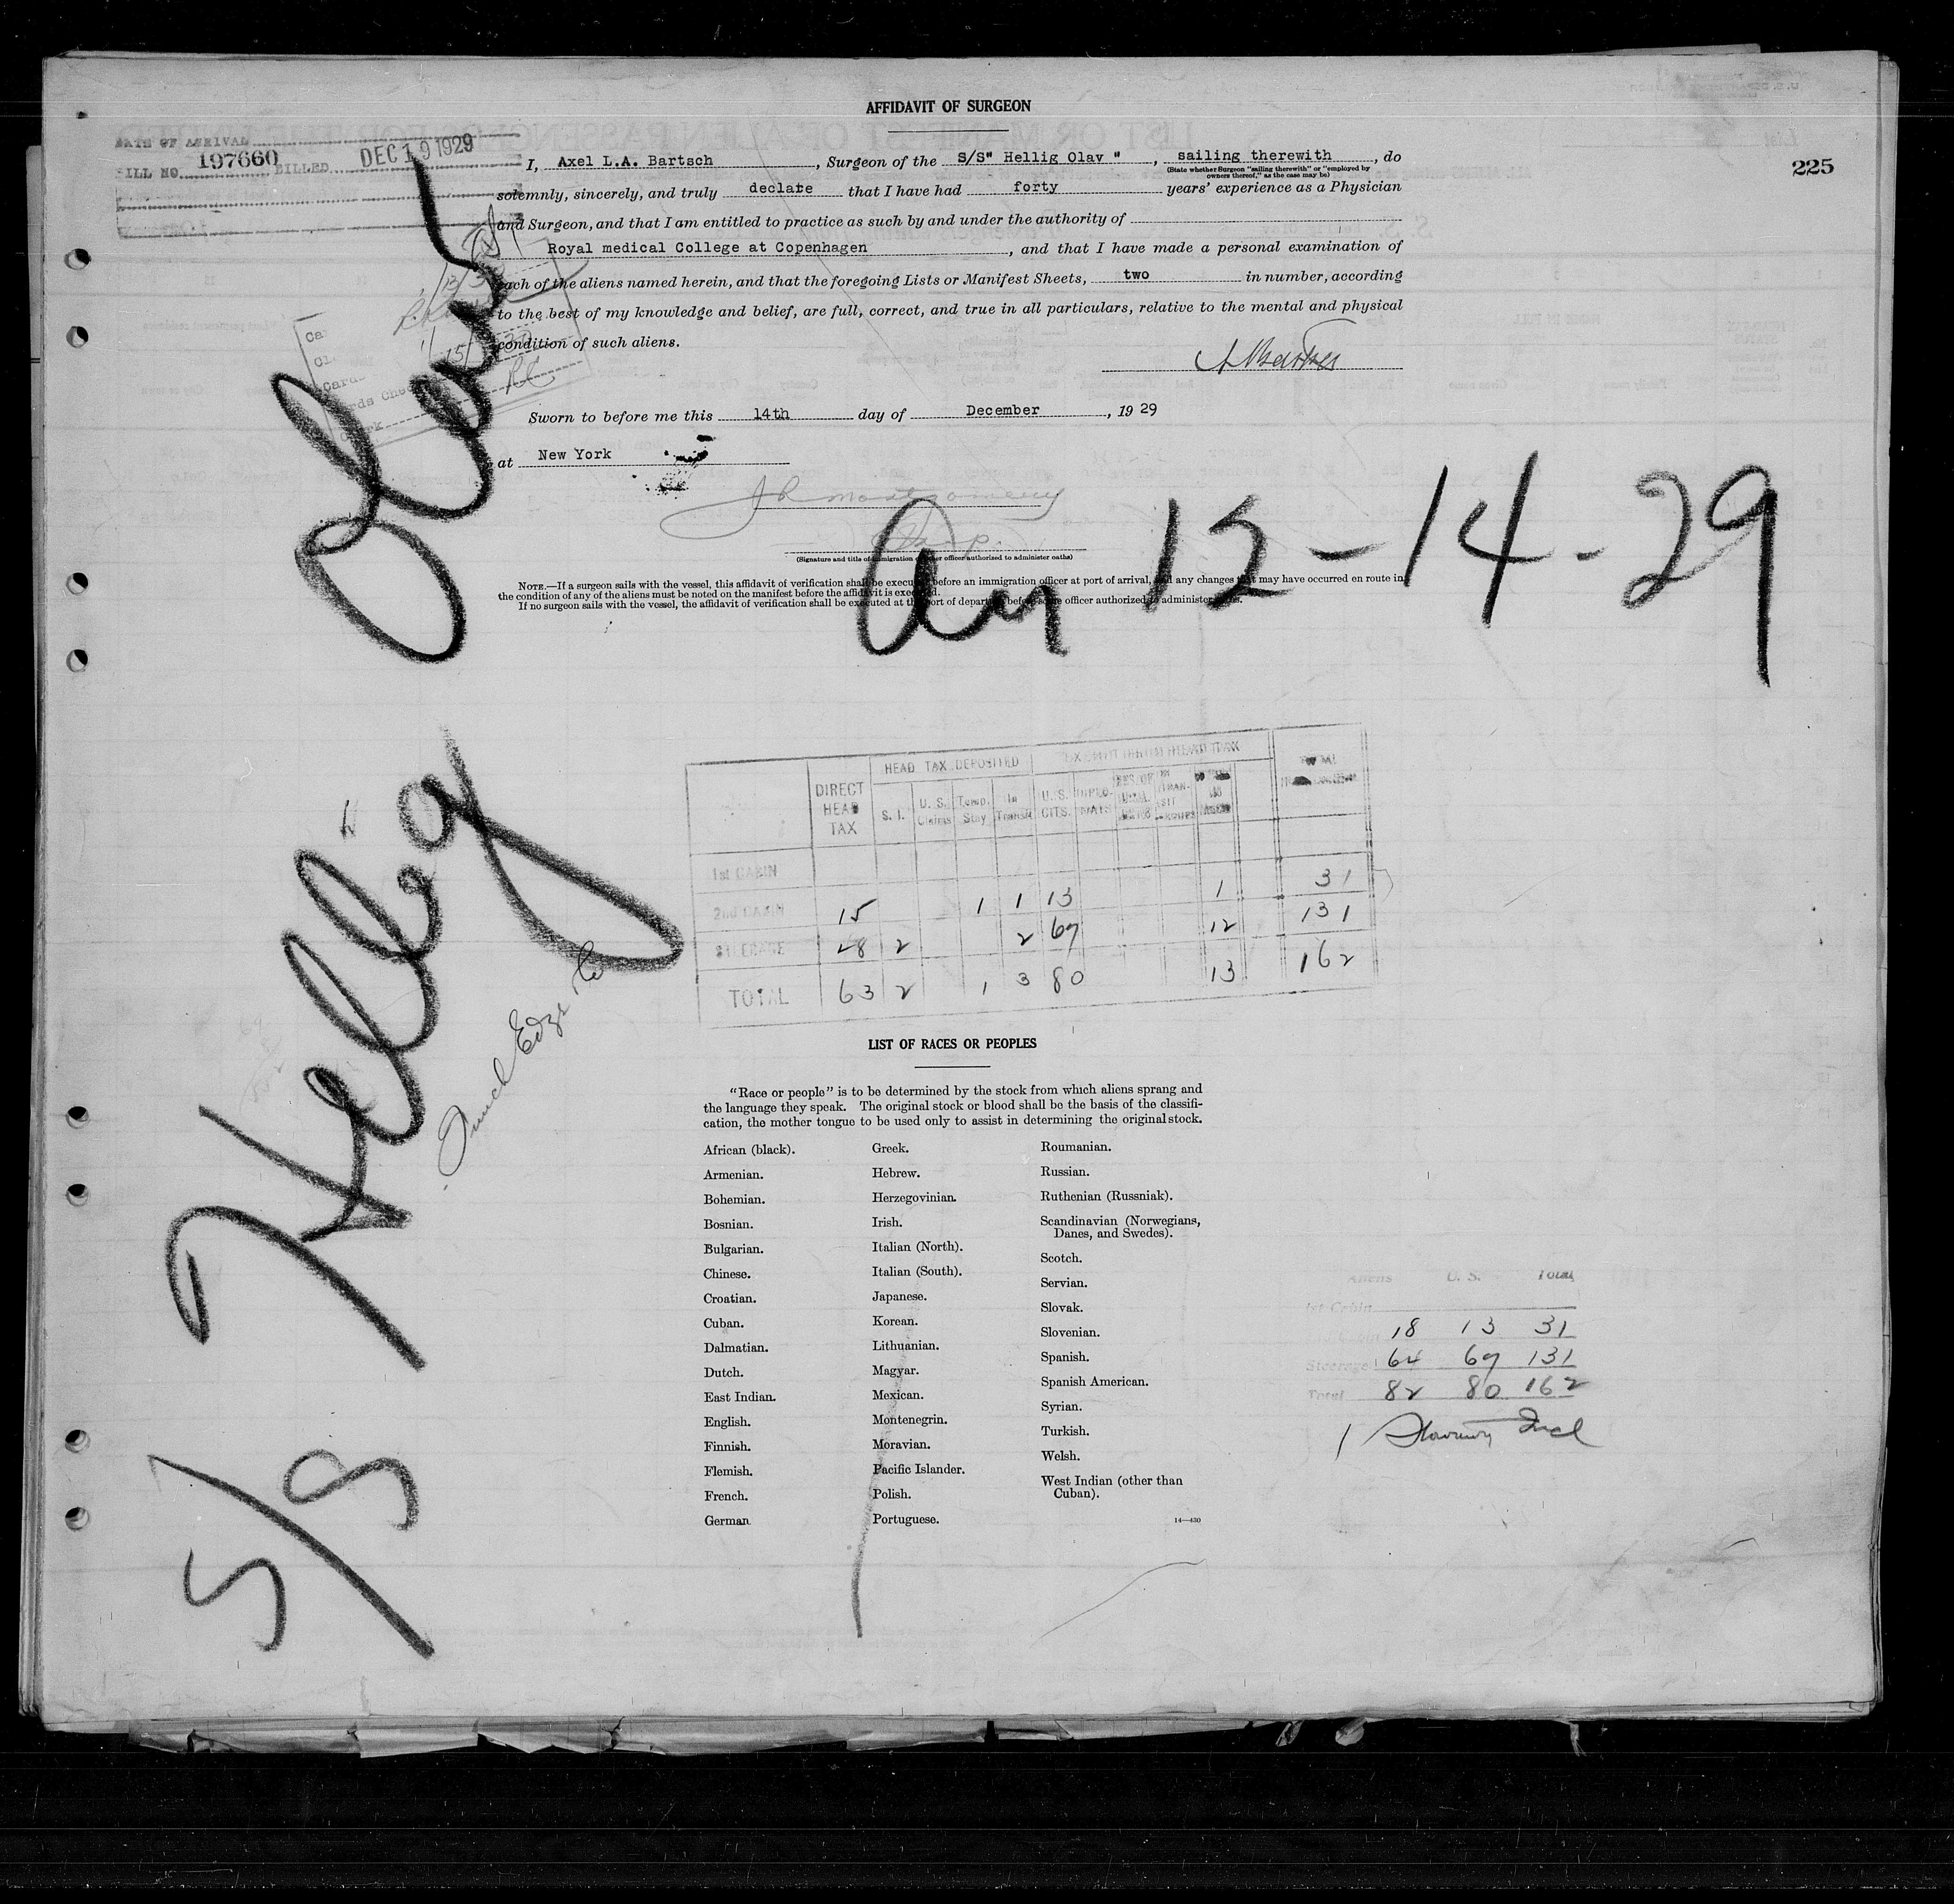 AFFIDAVIT OF SURGEON
DATE OF ARRIVAL
BILL NO. 197660 BILLED DEC 19 1929
225
I, Axel L.A. Bartsch, Surgeon of the S/S" Hellig Olav ", sailing therewith, do
(State whether Surgeon "sailing therewith" or "employed by
owners thereof," as the case may be)
solemnly, sincerely, and truly declate that I have had forty years' experience as a Physician
and Surgeon, and that I am entitled to practice as such by and under the authority of
Royal medical College at Copenhagen, and that I have made a personal examination of
each of the aliens named herein, and that the foregoing Lists or Manifest Sheets, two in number, according
to the best of my knowledge and belief, are full, correct, and true in all particulars, relative to the mental and physical
condition of such aliens.
Sworn to before me this 14th day of December, 19 29
at New York
J R Montgomery
(Signature and title of immigration or other officer authorized to administer oaths)
NOTE.—If a surgeon sails with the vessel, this affidavit of verification shall be executed before an immigration officer at port of arrival, and any changes that may have occurred en route in
the condition of any of the aliens must be noted on the manifest before the affidavit is executed.
If no surgeon sails with the vessel, the affidavit of verification shall be executed at the port of departure before some officer authorized to administer oaths.
Arr 12-14-29
S/S Hellig Olav
HEAD TAX DEPOSITED EXEMPT FROM HEAD TAX TOTAL
DIRECT HEAD TAX S. I. U. S. Claims Temp. Stay In Transit U. S. CITS. DIPLO-MATS
1st CABIN
2nd CABIN 15 1 1 13 1 31
STEERAGE 48 2 2 67 12 131
TOTAL 63 2 1 3 80 13 162
LIST OF RACES OR PEOPLES
"Race or people" is to be determined by the stock from which aliens sprang and
the language they speak. The original stock or blood shall be the basis of the classifi-
cation, the mother tongue to be used only to assist in determining the original stock.
African (black).
Armenian.
Bohemian.
Bosnian.
Bulgarian.
Chinese.
Croatian.
Cuban.
Dalmatian.
Dutch.
East Indian.
English.
Finnish.
Flemish.
French.
German
Greek.
Hebrew.
Herzegovinian.
Irish.
Italian (North).
Italian (South).
Japanese.
Korean.
Lithuanian.
Magyar.
Mexican.
Montenegrin.
Moravian.
Pacific Islander.
Polish.
Portuguese.
Roumanian.
Russian.
Ruthenian (Russniak).
Scandinavian (Norwegians,
Danes, and Swedes).
Scotch.
Servian.
Slovak.
Slovenian.
Spanish.
Spanish American.
Syrian.
Turkish.
Welsh.
West Indian (other than
Cuban).
14—430
Aliens U. S. Total
1st Cabin
18 13 31
Steerage 64 67 131
Total 82 80 162